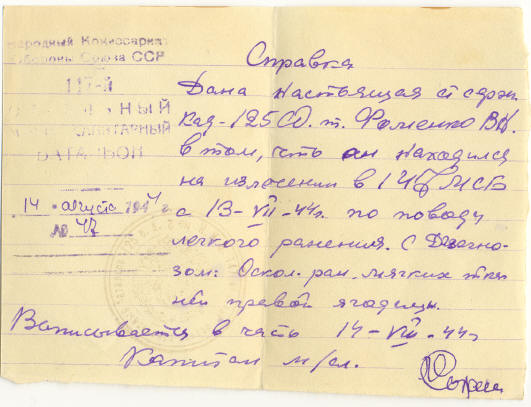 Народный Комиссариат
Обороны Союза ССР
117-й
МЕДИКО-САНИТАРНЫЙ
БАТАЛЬОН
14 августа 1944
№ 47
Справка
Дана настоящая ст сержан
125 СД. т. Фоменко В
в том, что он находился
на излечении в МСБ
с 13-VII-44г. по поводу
легкого ранения. С Диагно-
зом: Оскол. ран. мягких тка
ней правой ягодицы.
Выписывается в часть 14-VIII-44г
Капитан м/сл.